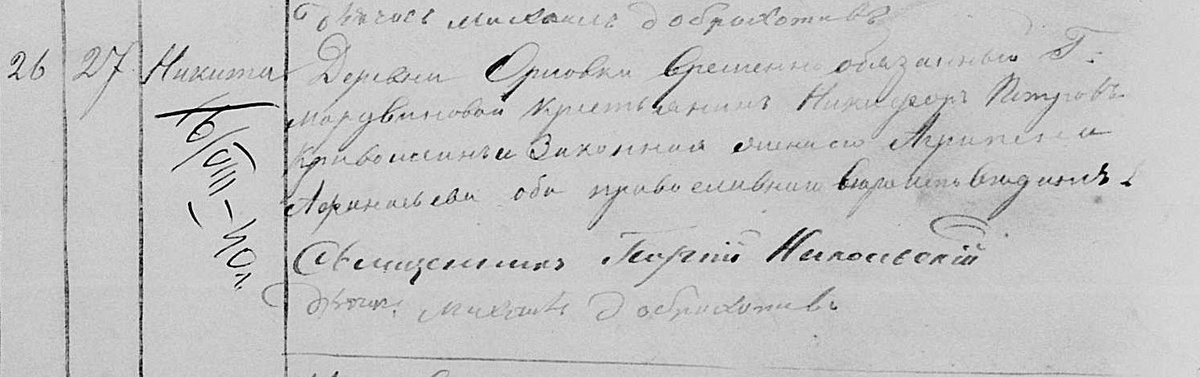 Дьячокъ Михаилъ Доброхотовъ
26 27 Никита Деревни Орловки Временно обязанный Г:
Мордвиновой Крестьянинъ Никифоръ Петровъ
16/VIII-40 г.
и Законная жена его Агрипена
Афанасьева оба православнаго
Священникъ Георгій Никольскій
Дьячокъ Михаилъ Доброхотовъ